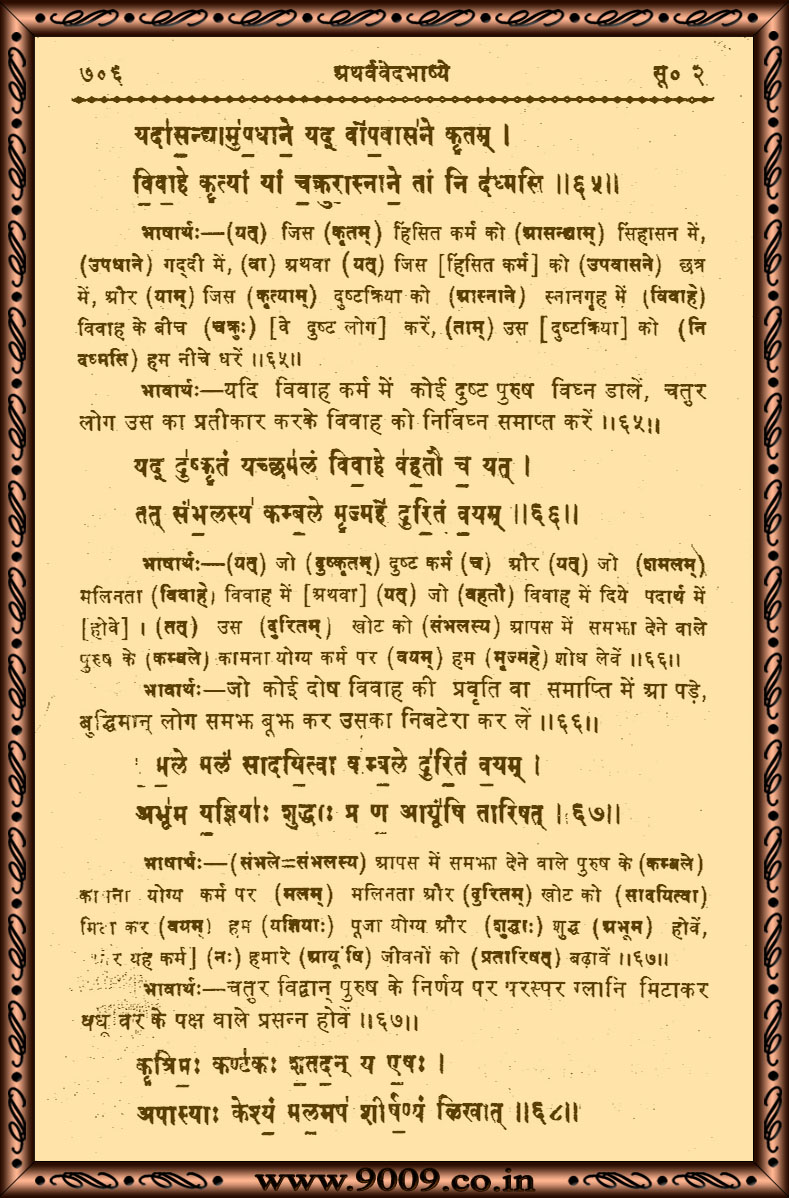 ७०६ अथर्ववेदभाष्ये सू० २
यदा॑स॒न्द्यामु॑प॒धाने॒ यद् वो॑प॒वास॑ने कृ॒तम् ।
वि॒वा॒हे कृ॒त्यां यां च॒क्रुरा॒स्नाने॒ तां नि द॑ध्मसि ॥६५॥
भाषार्थः—(यत्) जिस (कृतम्) हिंसित कर्म को (आसन्द्याम्) सिंहासन में,
(उपधाने) गद्दी में, (वा) अथवा (यत्) जिस [हिंसित कर्म] को (उपवासने) छत्र
में, और (याम्) जिस (कृत्याम्) दुष्टक्रिया को (आस्नाने) स्नानगृह में (विवाहे)
विवाह के बीच (चक्रुः) [वे दुष्ट लोग] करें, (ताम्) उस [दुष्टक्रिया] को (नि
दध्मसि) हम नीचे धरें ॥६५॥
भावार्थः—यदि विवाह कर्म में कोई दुष्ट पुरुष विघ्न डालें, चतुर
लोग उस का प्रतीकार करके विवाह को निर्विघ्न समाप्त करें ॥६५॥
यद् दु॑ष्कृ॒तं यच्छम॑लं विवा॒हे व॑ह॒तौ च॒ यत् ।
तत् सं॑भ॒लस्य॑ कम्ब॒ले मृ॒ज्महे॑ दुरि॒तं व॒यम् ॥६६॥
भाषार्थः—(यत्) जो (दुष्कृतम्) दुष्ट कर्म (च) और (यत्) जो (शमलम्)
मलिनता (विवाहे) विवाह में [अथवा] (यत्) जो (वहतौ) विवाह में दिये पदार्थ में
[होवे] । (तत्) उस (दुरितम्) खोट को (संभलस्य) आपस में समझा देने वाले
पुरुष के (कम्बले) कामना योग्य कर्म पर (वयम्) हम (मृज्महे) शोध लेवें ॥६६॥
भावार्थः—जो कोई दोष विवाह की प्रवृति वा समाप्ति में आ पड़े,
बुद्धिमान् लोग समझ बूझ कर उसका निबटेरा कर लें ॥६६॥
भ॒ले मलं॑ सादयि॒त्वा कम्ब॒ले दु॑रि॒तं व॒यम् ।
अभू॑म य॒ज्ञियाः॑ शु॒द्धाः प्र ण॒ आयूं॑षि तारिषत् ।६७॥
भाषार्थः—(संभले=संभलस्य) आपस में समझा देने वाले पुरुष के (कम्बले)
कामना योग्य कर्म पर (मलम्) मलिनता और (दुरितम्) खोट को (सादयित्वा)
मिटा कर (वयम्) हम (यज्ञियाः) पूजा योग्य और (शुद्धाः) शुद्ध (अभूम) होवें,
र यह कर्म] (नः) हमारे (आयूंषि) जीवनों को (प्रतारिषत्) बढ़ावें ॥६७॥
भावार्थः—चतुर विद्वान् पुरुष के निर्णय पर परस्पर ग्लानि मिटाकर
वधू वर के पक्ष वाले प्रसन्न होवें ॥६७॥
कृ॒त्रिमः॒ कण्ट॑कः श॒तद॒न् य ए॒षः ।
अपा॒स्याः केश्यं॒ मल॒मप॑ शीर्ष॒ण्यं॑ लिखात् ॥६८॥
www.9009.co.in